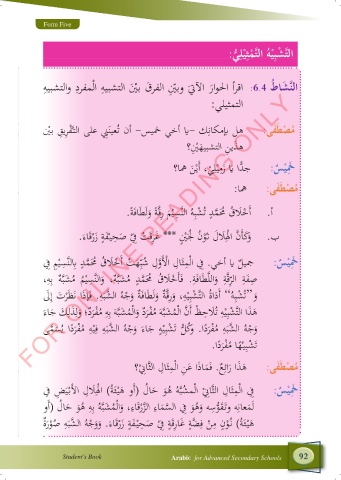 Form Five
التَّشْبِيْهُ التَّمْثِيْلِيُّ:
النَّشَاطُ 6.4: اقرأ الحوارَ الآتيَ وبيِّنِ الفرقَ بَيْنَ التشبيهِ المفردِ والتشبيهِ
التمثيلي:
مُصْطَفَى: هل بإمكانِك -يا أخي خميس- أن تُعِينَنِي على التَّفْرِيْقِ بَيْنَ
هذينِ التشبيهَيْنِ؟
خَمِيْسٌ: جدًّا يا زَمِيْلِيْ، أَيْنَ هما؟
مُصْطَفَى: هما:
أ. أَخْلَاقُ مُحَمَّدٍ تُشْبِهُ النَّسِيْمَ رِقَّةً وَلَطَافَةً.
ب. وَكَأَنَّ الهِلَالَ نُوْنُ لُجَيْنٍ *** غَرِقَتْ فِيْ صَحِيْفَةٍ زَرْقَاءَ.
خَمِيْسٌ: جميلٌ يا أخي. فِي المِثَالِ الْأَوَّلِ شُبِّهَتْ أَخْلَاقُ مُحَمَّدٍ بِالنَّسِيْمِ فِي
صِفَةِ الرِّقَّةِ وَاللَّطَافَةِ. فَأَخْلَاقُ مُحَمَّدٍ مُشَبَّهٌ، وَالنَّسِيْمُ مُشَبَّهٌ بِهِ،
وَ”تُشْبِهُ“ أَدَاةُ التَّشْبِيْهِ، وَرِقَّةً وَلَطَافَةً وَجْهُ الشَّبَهِ. فَإِذَا نَظَرْتَ إِلَى
هَذَا التَّشْبِيْهِ تُلَاحِظُ أَنَّ الْمُشَبَّهَ مُفْرَدٌ وَالْمُشَبَّهَ بِهِ مُفْرَدٌ؛ وَلِذَلِكَ جَاءَ
وَجْهُ الشَّبَهِ مُفْرَدًا. وَكُلُّ تَشْبِيْهٍ جَاءَ وَجْهُ الشَّبَهِ فِيْهِ مُفْرَدًا يُسَمَّى
تَشْبِيْهًا مُفْرَدًا.
مُصْطَفَى: هَذَا رَائِعٌ. فَمَاذَا عَنِ المِثَالِ الثَّانِيْ؟
خَمِيْسٌ: فِي المِثَالِ الثَّانِيْ المُشَبَّهُ هُوَ حَالُ (أَو هَيْئَةُ) الهِلَالِ الأَبْيَضِ فِي
لَمَعَانِهِ وَتَقَوُّسِهِ وَهُوَ فِي السَّمَاءِ الزَّرْقَاءِ، وَالْمُشَبَّهُ بِهِ هُوَ حَالُ (أَو
هَيْئَةُ) نُوْنٍ مِنْ فِضَّةٍ غَارِقَةٍ فِيْ صَحِيْفَةٍ زَرْقَاءَ. وَوَجْهُ الشَّبَهِ صُوْرَةٌ
FOR ONLINE READING ONLY
Student's Book
Arabic for Advanced Secondary Schools
92